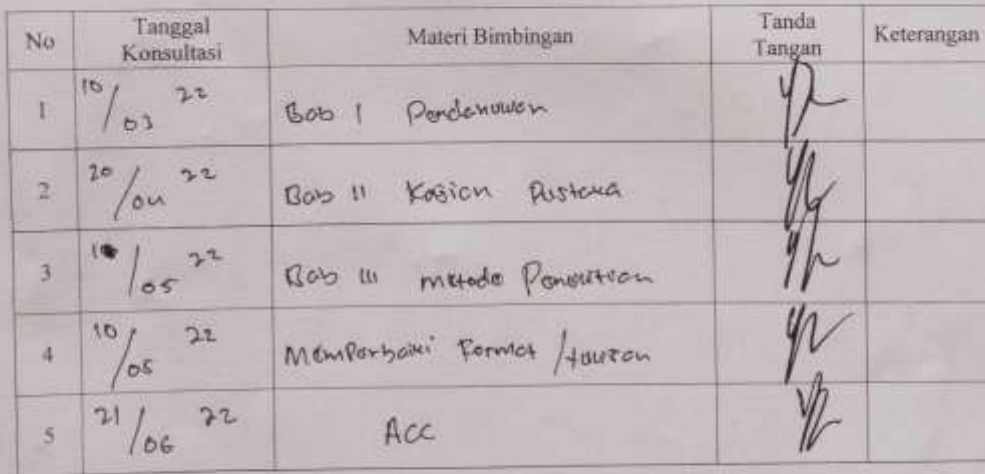 No Tanggal Konsultasi Materi Bimbingan Tanda Tangan Keterangan
1 10/03 22 Bab I Pendahuluan
2 20/04 22 Bab II Kajian Pustaka
3 10/05 22 Bab III Metode Penelitian
4 10/05 22 Memperbaiki Format / tulisan
5 21/06 22 ACC